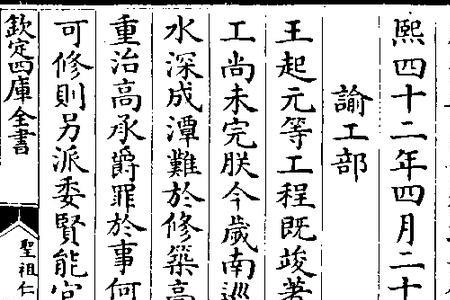 熙四十二年四月二十
諭工部
王起元等工程既竣著
工尚未完朕今歲南巡
水深成潭難於修築高
重治高承爵罪於事何
可修則另派委賢能官
欽定四庫全書
聖祖仁